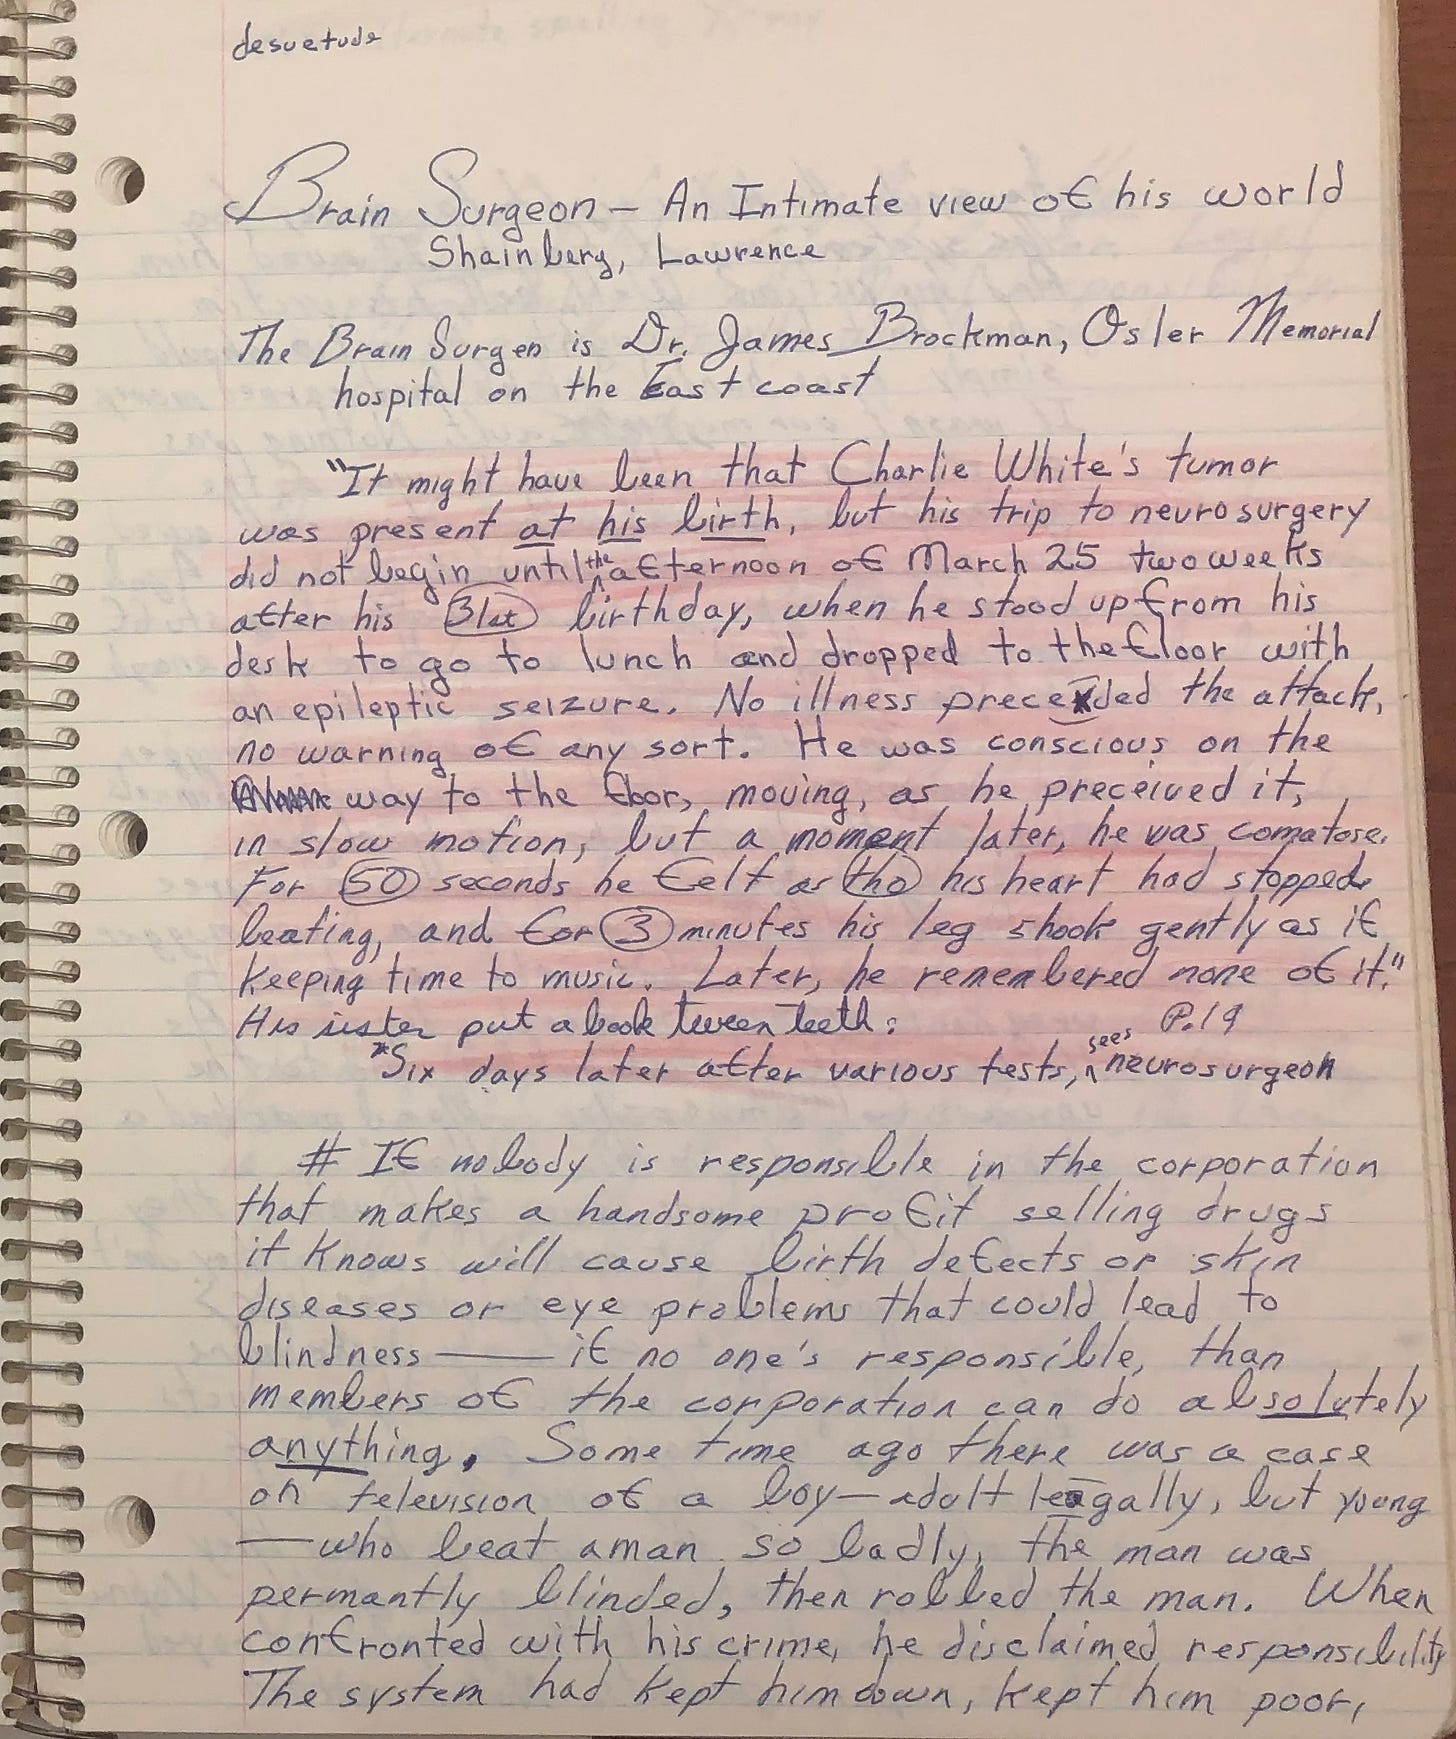 desuetude
Brain Surgeon — An Intimate view of his world
Shainberg, Lawrence
The Brain Surgen is Dr. James Brockman, Osler Memorial
hospital on the East coast
"It might have been that Charlie White's tumor
was present at his birth, but his trip to neurosurgery
did not begin until the afternoon of March 25 two weeks
after his 31st birthday, when he stood up from his
desk to go to lunch and dropped to the floor with
an epileptic seizure. No illness preceded the attack,
no warning of any sort. He was conscious on the
way to the floor, moving, as he preceived it,
in slow motion, but a moment later, he was comatose.
For 50 seconds he felt as tho his heart had stopped
beating, and for 3 minutes his leg shook gently as if
keeping time to music. Later, he remembered none of it."
His sister put a book tween teeth. P.19
*Six days later after various tests, sees neurosurgeon
# If nobody is responsible in the corporation
that makes a handsome profit selling drugs
it knows will cause birth defects or skin
diseases or eye problems that could lead to
blindness — if no one's responsible, than
members of the corporation can do absolutely
anything. Some time ago there was a case
on television of a boy — adult legally, but young
— who beat a man so badly, the man was
permantly blinded, then robbed the man. When
confronted with his crime, he disclaimed responsibility
The system had kept him down, kept him poor,